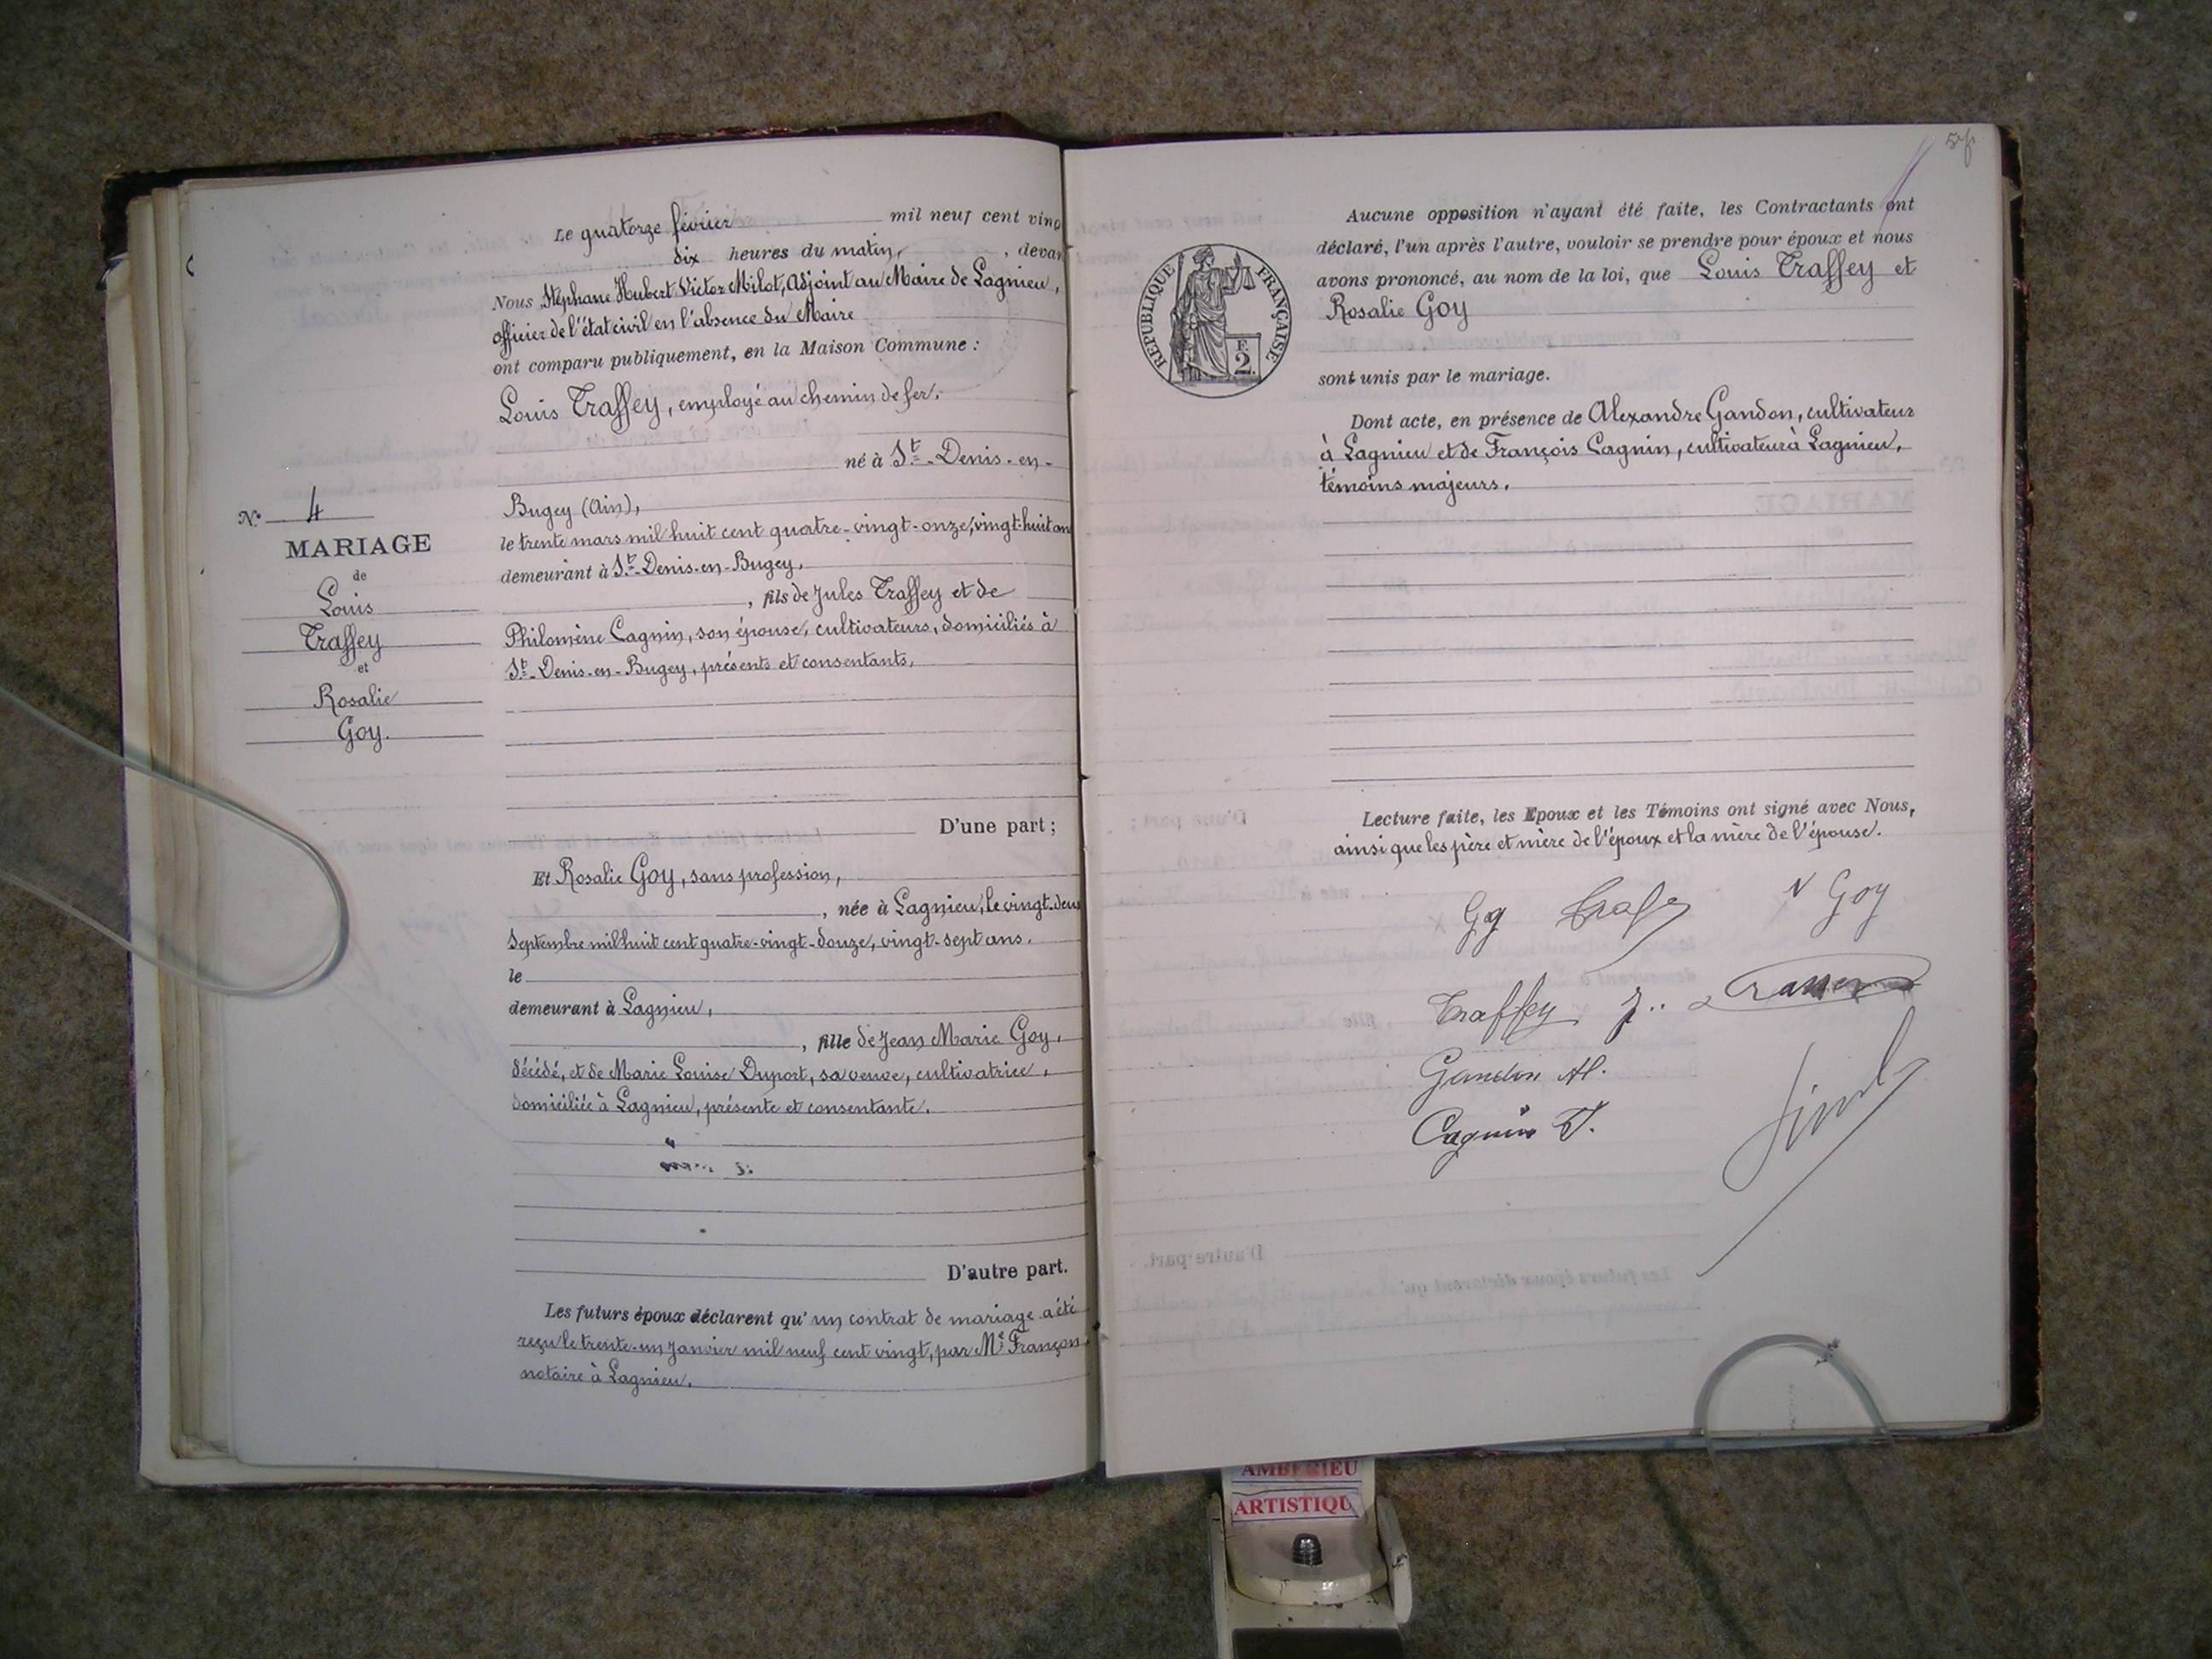 Le quatorze février mil neuf cent ving
dix heures du matin, , devan
Nous Stéphane Hubert Victor Milot, Adjoint au Maire de Lagnieu,
officier de l'état civil en l'absence du Maire
ont comparu publiquement, en la Maison Commune :
Louis Traffey, employé au chemin de fer,
né à St-Denis-en-
Bugey (Ain),
le trente mars mil huit cent quatre-vingt-onze, vingt-huit an
demeurant à St-Denis-en-Bugey,
, fils de Jules Traffey et de
Philomène Cagnin, son épouse, cultivateurs, domiciliés à
St-Denis-en-Bugey, présents et consentants,
D'une part ;
Et Rosalie Goy, sans profession,
, née à Lagnieu, le vingt-deux
Septembre mil huit cent quatre-vingt-douze, vingt-sept ans.
le
demeurant à Lagnieu,
, fille de Jean Marie Goy,
décédé, et de Marie Louise Duport, sa veuve, cultivatrice,
domiciliée à Lagnieu, présente et consentante.
D'autre part.
Les futurs époux déclarent qu'un contrat de mariage a été
reçu le trente-un Janvier mil neuf cent vingt, par Me François
notaire à Lagnieu.
N° 4
MARIAGE
de
Louis
Traffey
et
Rosalie
Goy.
Aucune opposition n'ayant été faite, les Contractants ont
déclaré, l'un après l'autre, vouloir se prendre pour époux et nous
avons prononcé, au nom de la loi, que Louis Traffey et
Rosalie Goy
sont unis par le mariage.
Dont acte, en présence de Alexandre Gandon, cultivateur
à Lagnieu et de François Cagnin, cultivateur à Lagnieu,
témoins majeurs.
RÉPUBLIQUE FRANÇAISE
F.
2.
Lecture faite, les Epoux et les Témoins ont signé avec Nous,
ainsi que les père et mère de l'époux et la mère de l'épouse.
Goy
Traffey J.
Gandon Al.
Cagnin F.
AMBERIEU
ARTISTIQU